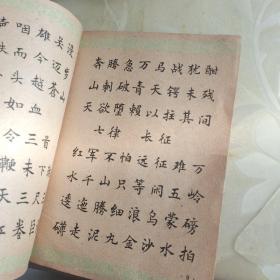 声咽雄关漫
铁而今迈步
头越苍山
如血
令三首
鞭未下
天三尺三
江卷巨
奔腾急万马战犹酣
山刺破青天锷未残
天欲堕赖以拄其间
七律 长征
红军不怕远征难万
水千山只等闲五岭
逶迤腾细浪乌蒙磅
礴走泥丸金沙水拍
9